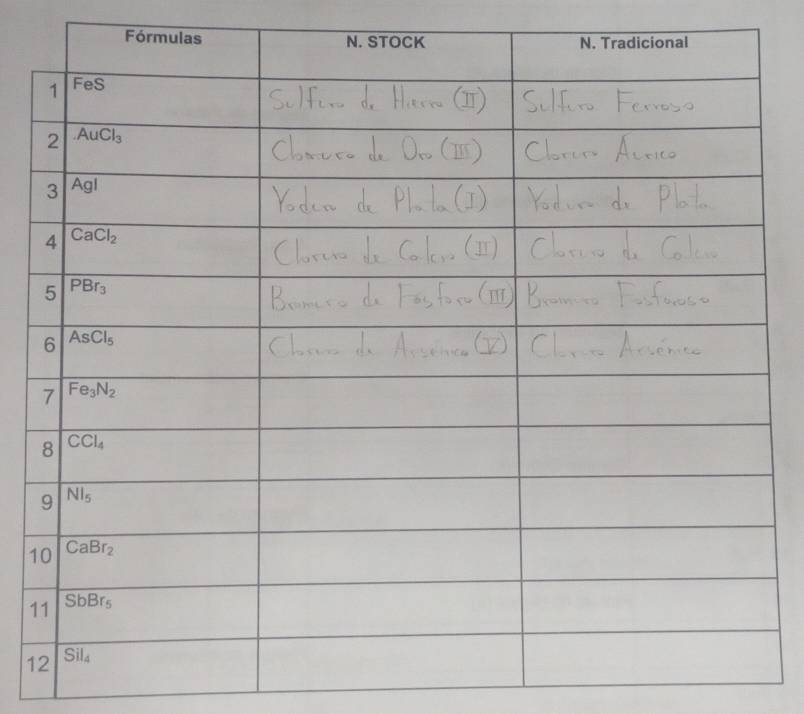 Fórmulas N. STOCK N. Tradicional
1 FeS Sulfuro de Hierro (II) Sulfuro Ferroso
2 .AuCl₃ Cloruro de Oro (III) Cloruro Aurico
3 AgI Yoduro de Plata (I) Yoduro de Plata
4 CaCl₂ Cloruro de Calcio (II) Cloruro de Calcio
5 PBr₃ Bromuro de Fosforo (III) Bromuro Fosforoso
6 AsCl₅ Cloruro de Arsénico (V) Cloruro Arsénico
7 Fe₃N₂
8 CCl₄
9 NI₅
10 CaBr₂
11 SbBr₅
12 SiI₄